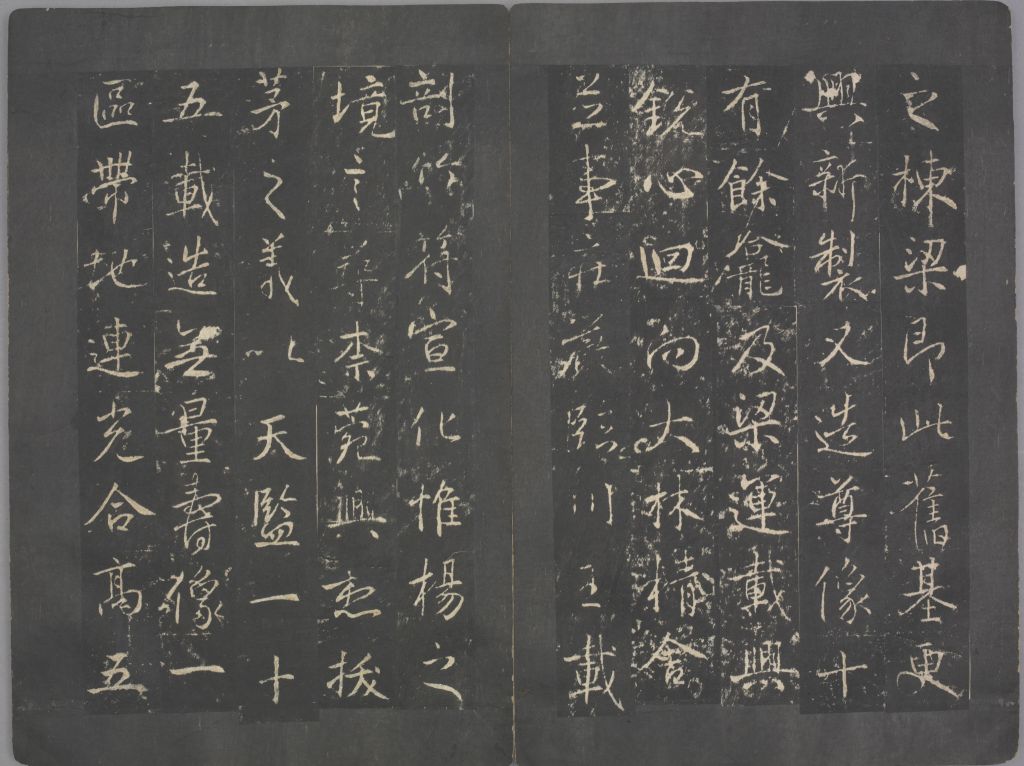 之棟梁即此舊基更
興新製又造尊像十
有餘龕及梁運載興
銳心回向大林精舍
並事莊嚴臨川王載
剖竹符宣化惟楊之
境言尋柰苑興言拔
茅之義以天監一十
五載造無量壽像一
區帶地連光合高五